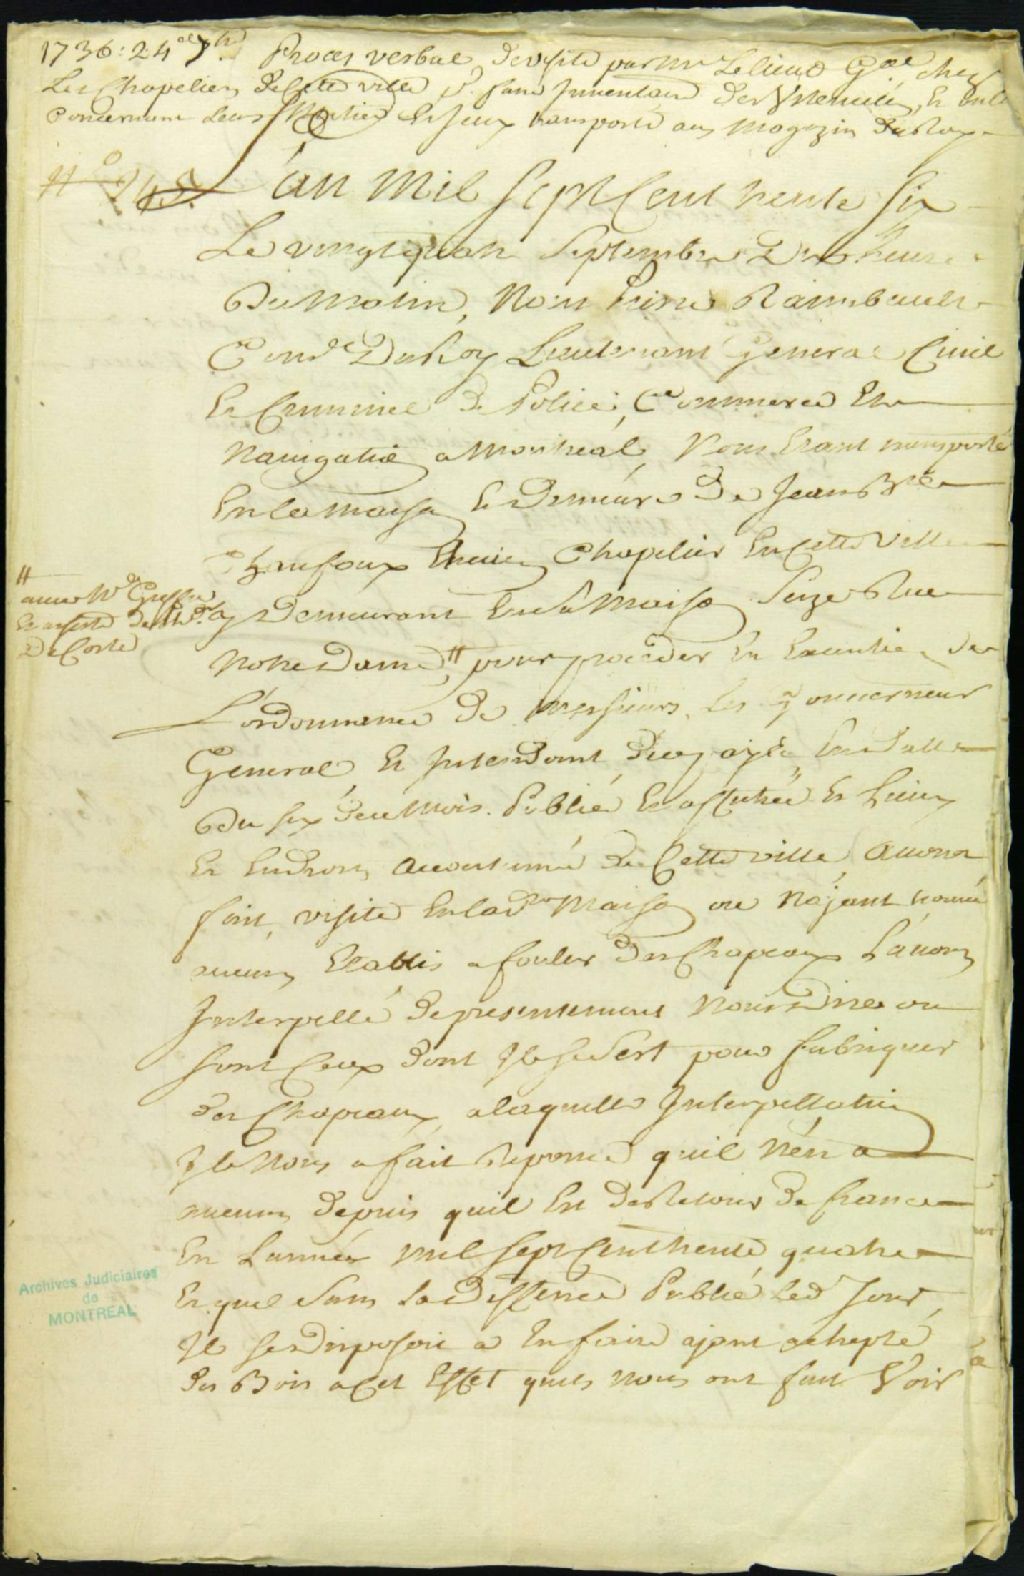 1736: 24e 7bre. Proces verbal de visitte par Mr Le lieut Gãl chez
Les Chapeliers de Cette ville pr. faire Inventaire des Ustencilles, Et outils
Concernant Leurs Metier Et Iceux transporté aux Magazin du Roy
No
L'an Mil Sept Cent trente Six
Le vingt quatre Septembre Dix heures
Du Matin, Nous Pierre Raimbault
Conser Du Roy Lieutenant General Civil
Et Criminel De Police, Commerce Et
Navigation a Montreal, Nous Etant transporté
En la maison Et Demeure de Jean Bte
Chaufoux Chapelier En Cette Ville
y Demeurant En Sa Maison Size Rue
Notre Dame, # pour proceder En Execution de
# avec Me
Et assisté de
De Coste
L'ordonnance De Messieurs Les Gouverneur
General, Et Intendant De ce païs En datte
Du six De ce Mois. Publiée Et affichée Es Lieux
Et Endroits accoutumé de Cette ville, Avons
fait visitte En lade Maison ou N'ayant trouvé
aucuns Etablis a fouler Des Chapeaux L'avons
Interpellé De presentement Nous Dire ou
Sont Ceux Dont Il se Sert pour fabriquer
Des Chapeaux, a laquelle Interpellation
Il Nous a fait Reponce quil N'en a
aucuns depuis quil Est De Retour De france
En L'année Mil Sept Cent trente quatre
Et quil Sans La Deffence Publié Led Jour,
Il Se Disposoit a En faire ayant achepté
Des Bois a Cet Effet quils Nous ont fait Voir
Archives Judiciaires
de
MONTREAL